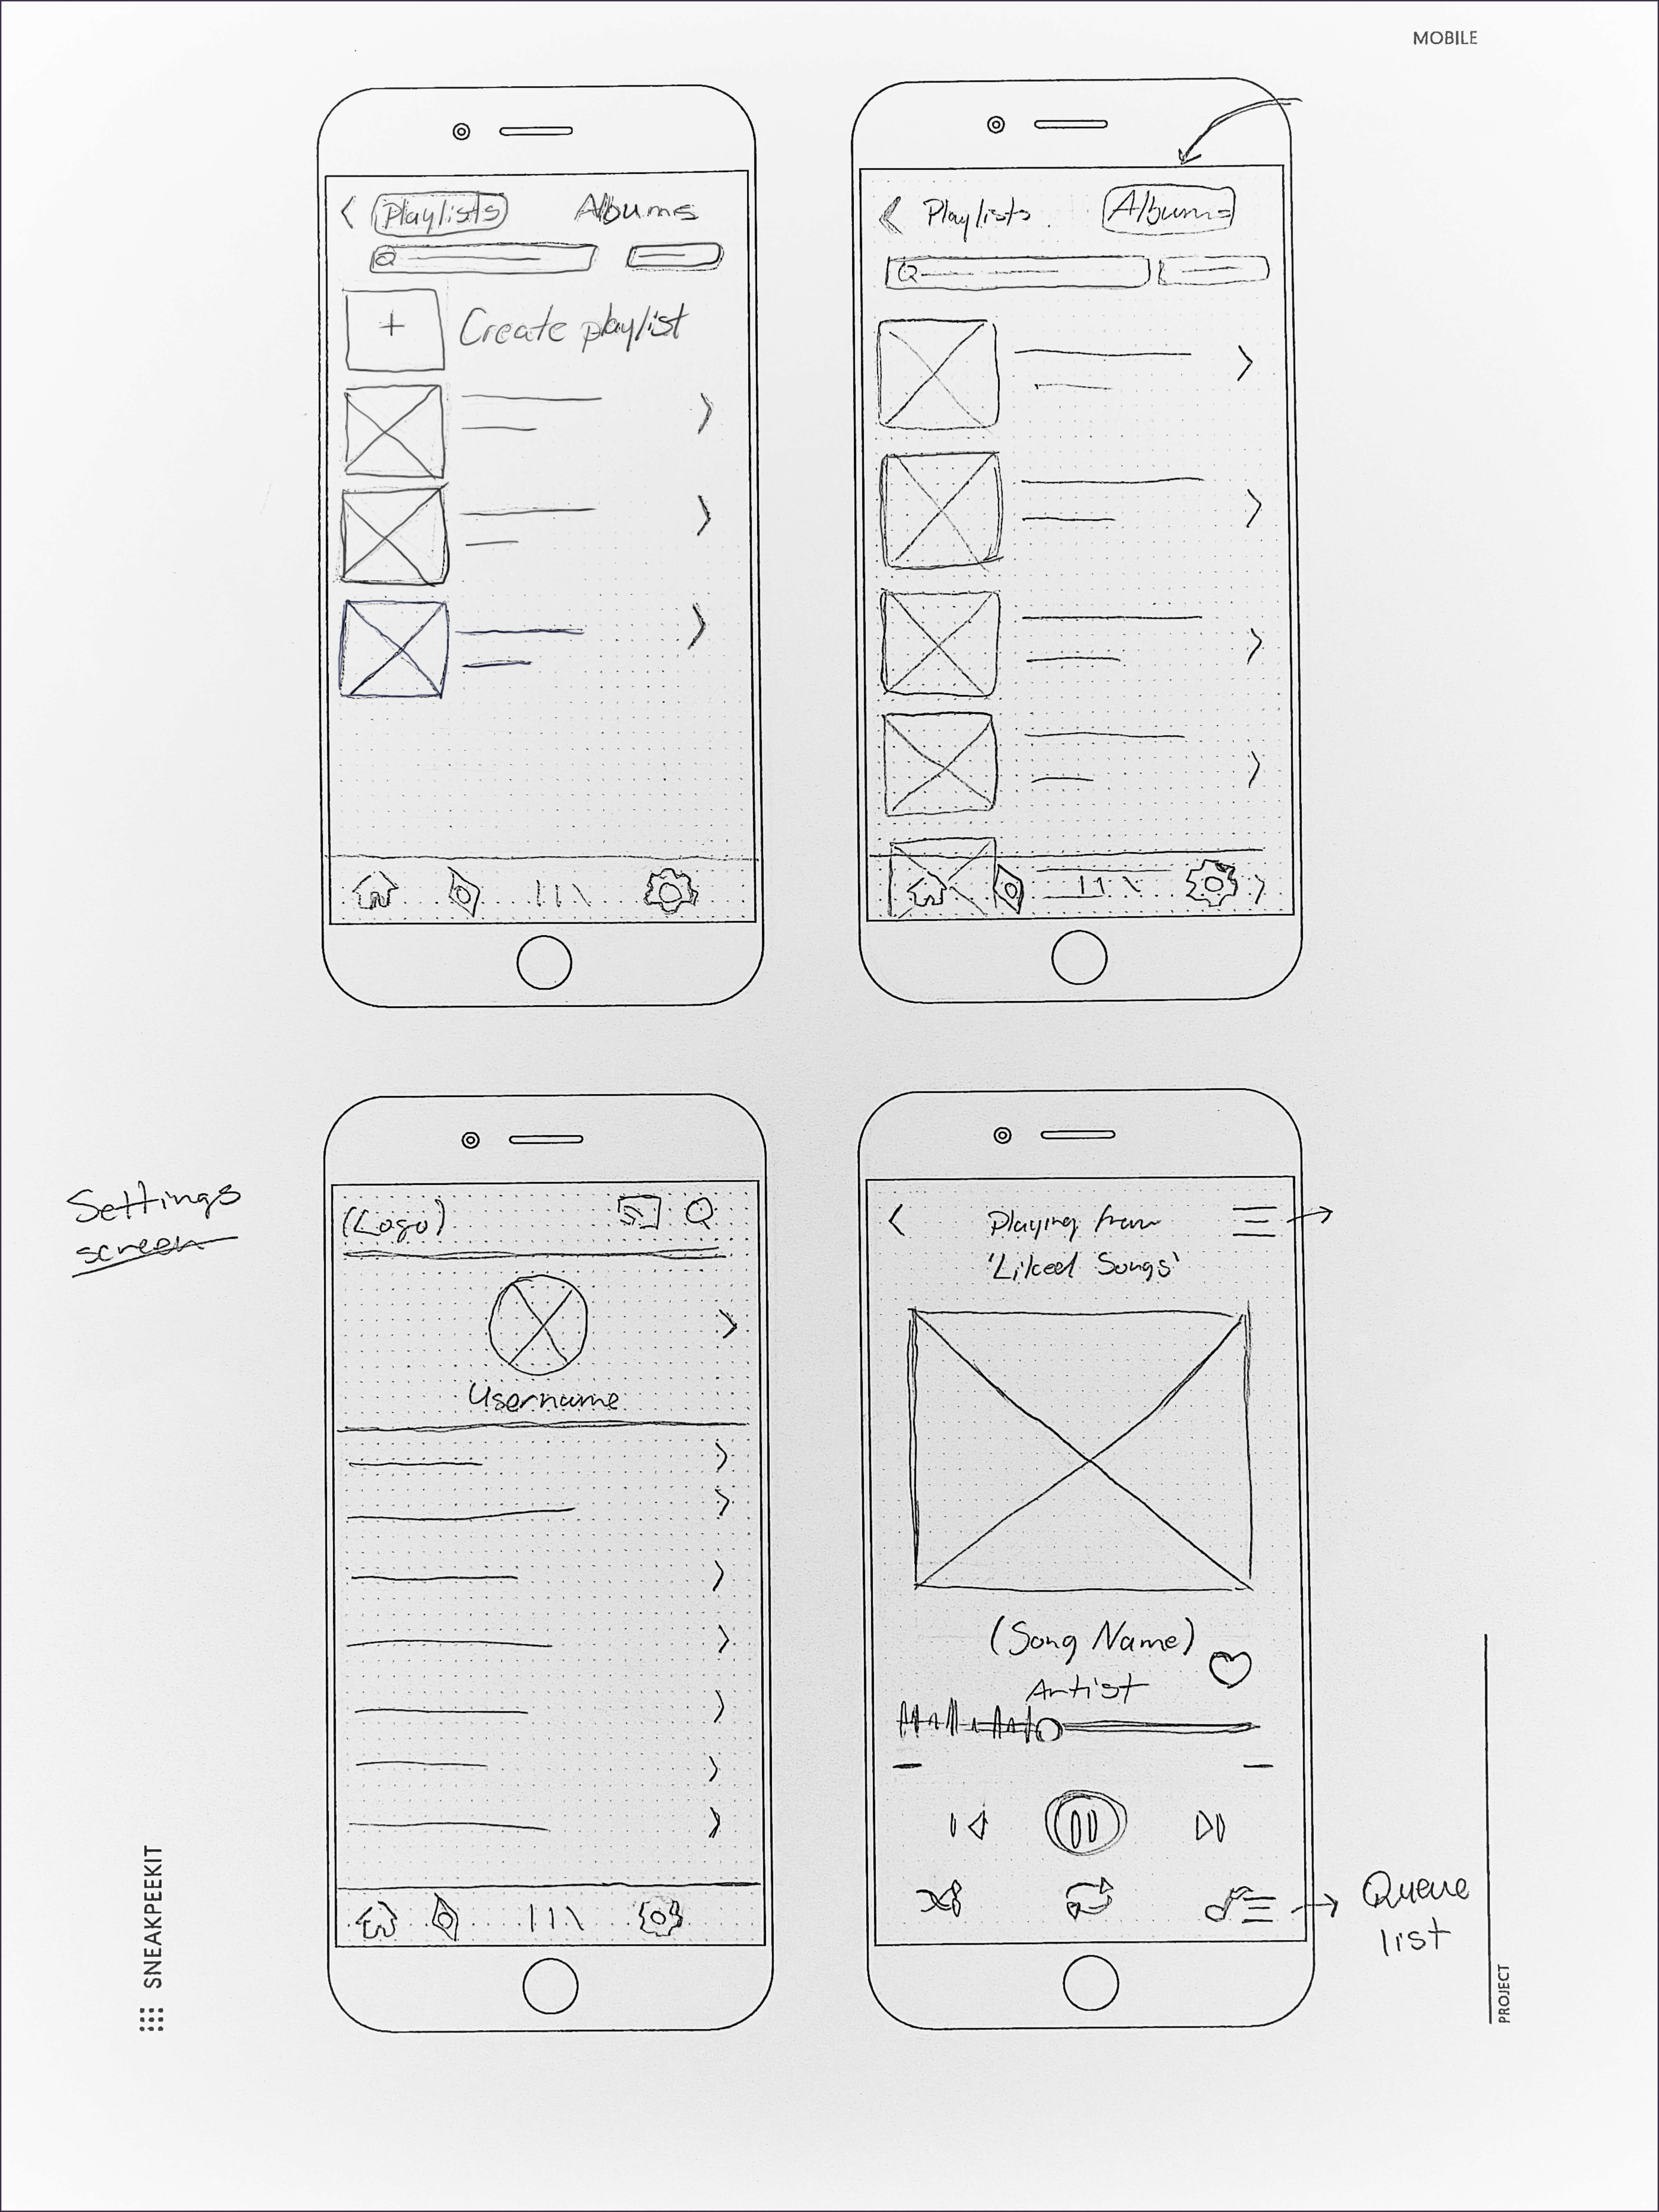 MOBILE
Playlists
Albums
Create playlist
Playlists
Albums
Settings
screen
(Logo)
Username
Playing from
'Liked Songs'
(Song Name)
Artist
Queue
list
SNEAKPEEKIT
PROJECT